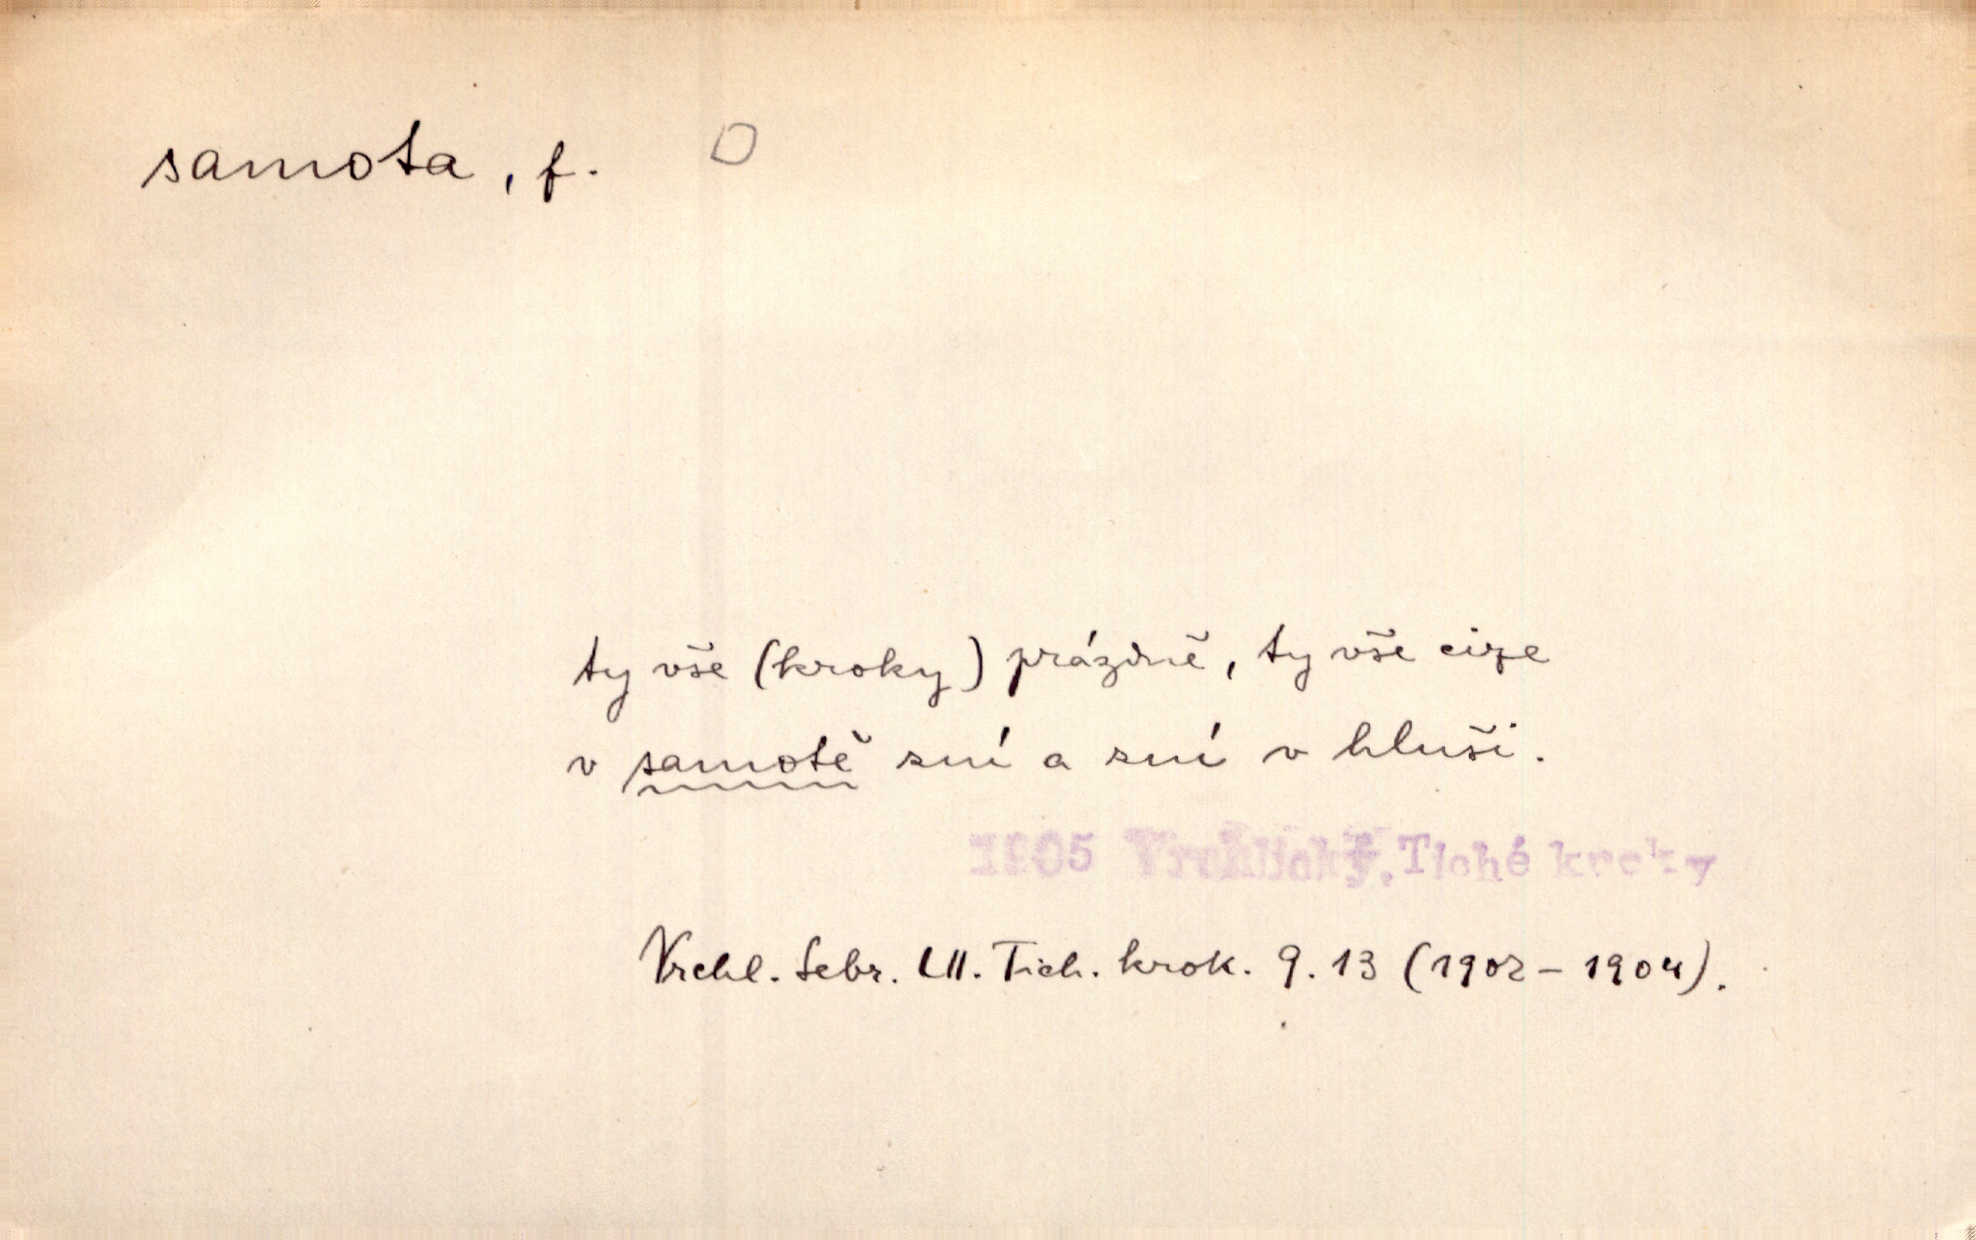 samota, f.
ty vše (kroky) prázdně, ty vše cize
v samotě zní a zní v hluši.
1905 Vrchlický, Tiché kroky
Vrchl. Sebr. LII. Tich. krok. 9. 13 (1902 – 1904).